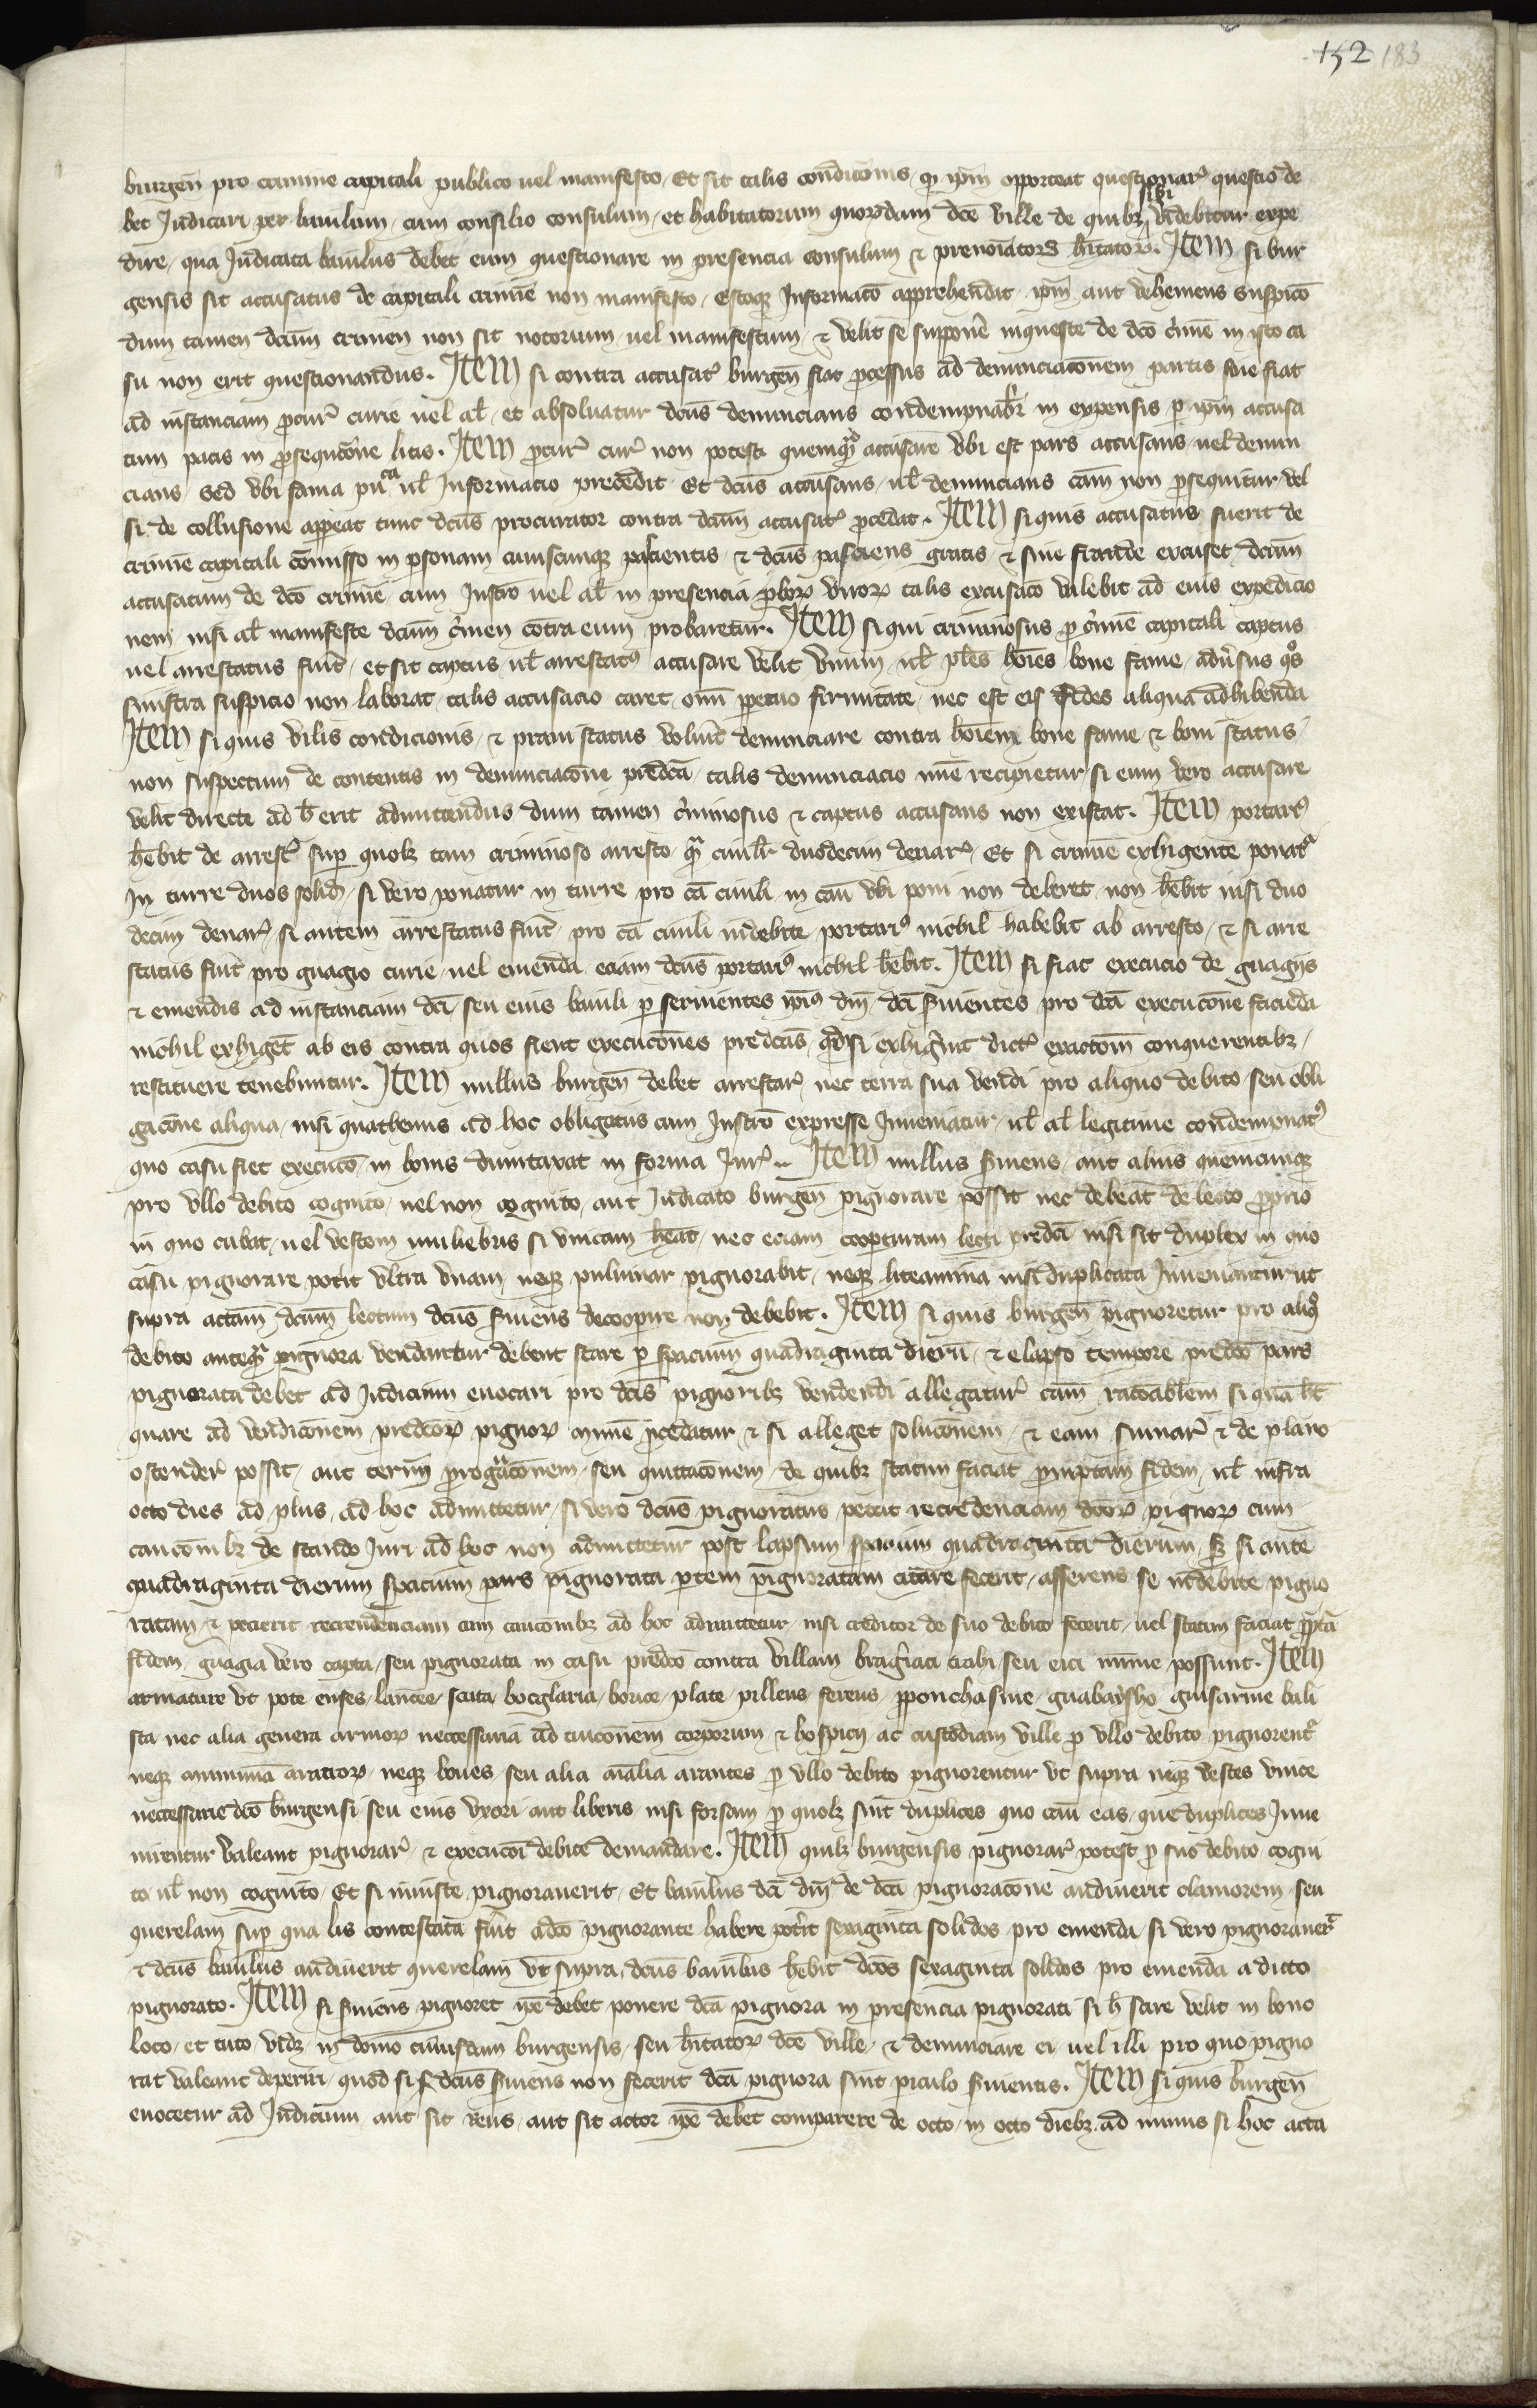 152 183
burgen̄ pro crimine capitali publico uel manifesto, Et sit talis condicionis, q̄ ip̄m opporteat questionar̃ questio de
bet Judicari per baiulum, cum consilio consulum, et habitatorum quorumdam dc̄e ville de quibȝ sibi videbitur expe
dire, qua Judicata baiulus debet eum questionare in presencia consulum ⁊ preno͞iatorꝝ h̄itatorꝝ. Item si bur
gensis sit accusatus de capitali crimīe non manifesto, Informac̄o apprehendit ip̄m aut vehemens suspic̄o
dum tamen dc̄um crimen non sit notorium, uel manifestum ⁊ velit se supponē inqueste de dc̄o c̄mīe in isto ca
su non erit questionandus. Item si contra accusat̃ burgen̄ fiat ꝓcessus ad denunciac̄onem partis siue fiat
ad instanciam ꝓcur̃ curie uel al̄, et absoluatur dc̄us denuncians condempnab̄r in expensis ꝑ ip̄m accusa
tum factis in ꝓsequc̄ōne litis. Item ꝓcur̃ cur̃ non potest quemqᵃ̄ accusare vbi est pars accusans, uel denun
cians, Sed vbi fama pu͞ca ul̄ Informacio precedit, Et dc̄us accusans, ul̄ denuncians cām non ꝓsequitur, vel
si de collusione appeāt tunc dc̄us procurator contra dc̄um accusat̃ ꝓcedat. Item si quis accusatus fuerit de
crimīe capitali cōmisso in ꝑsonam cuiuscunqȝ pascientis, ⁊ dc̄us pasciens gratis ⁊ sine fraude excuset dc̄um
accusatum de dc̄o crimīe cum Instr̄o uel al̄ in presencia ꝓborꝝ virorꝝ talis excusac̄o valebit ad eius expedicio
nem nisi al̄ manifeste dc̄um c̄men contra eum probaretur. Item si qui criminosus ꝓ c̄mīe capitali captus
uel arrestatus fuīt, et sic captus ul̄ arrestat⁹ accusare velit vnum, ul̄ pl̄es ho͞ies bone fame, adu̾sus q°s
sinistra suspicio non laborat, talis accusacio caret, om͞i ꝑpetuo firmitate, nec est eis fides aliqua adhibenda
Item si quis vilis condicionis, ⁊ praui status voluīt denunciare contra ho͞iem bone fame, ⁊ boni status,
non suspectum de contentis in denunciac̄one predc̄a, talis denunciacio mīe recipietur, si eum vero accusare
velit directe ad h̄ erit admittendus dum tamen c̄minosus ⁊ captus accusans non existat. Item portari⁹
h̄ebit de arrest̃ suꝑ quolȝ tam criminoso arresto, qᵃ̄ ciuil̄r duodecim denar̃, Et si crimīe exhigente ponat̃
In turre duos solid̄, si vero ponatur in turre pro cā ciuili, in cāu vbi poni non deberet, non h̄ebit nisi duo
decim denar̃, si autem arrestatus fuīt, pro cā ciuili indebite, portari⁹ nichil habebit ab arresto, ⁊ si arre
status fuīt pro guagio curie, uel emenda, eciam dc̄us portari⁹ nichil h̄ebit. Item si fiat execucio de guagijs
⁊ emendis ad instanciam dc̄i, seu eius baiuli, ꝑ seruientes ip̄i⁹ dn̄i dc̄i s̾uientes pro dc̄a execuc̄one facieda
nichil exhiget̄ ab eis contra quos fient execuc̄ones predc̄as, qd̄ si exhig̾int dict̃ exactōm conquerentibȝ,
restituere tenebuntur. Item nullus burgen̄ debet arrestar̃ nec terra sua vendi pro aliquo debito, seu obli
gac̄one aliqua, nisi quathenus ad hoc obligatus cum Instr̄o expresse Inueniatur, ul̄ al̄ legitime condempnat⁹
quo casu fiet execuc̄o, in bonis dumtaxat in forma Jur̃.. Item nullus s̾uiens, aut alius quemcunqȝ
pro vllo debito cognito, uel non cognito, aut Judicato burgen̄ pignorare possit nec debeat de lecto ꝓprio
in quo cubat, uel vestem muliebris si vnicam hēat, nec eciam coopturam lecti predc̄i nisi sit duplex in quo
casu pignorare potīt vltra vnam, neqȝ puluinar pignorabit, neqȝ liteamina nisi duplicata Inueniantur, ut
supra dc̄um lectum dc̄us s̾uiens decooꝑire non debebit. Item si quis burgen̄ pignoretur pro aliq°
debito anteqᵃ̄ pignora vendantur debent stare ꝑ spacium quadraginta dieru͞, ⁊ elapso tempore predc̄o pars
pignorata debet ad Judicium euocari pro dc̄is pignoribȝ vendendi allegatur̃ cām rac̄oablem si quā h̄t
quare ad vendic̄onem predc̄orꝝ pignorꝝ mīme ꝓcedatur, ⁊ si alleget soluc̄onem, ⁊ eam sumar̃ ⁊ de plano
ostender̃ possit, aut term͞ ꝓrogᵃc̄onem, seu quittac̄onem, de quibȝ statim faciat ꝓmptam fidem, ul̄ infra
octo dies ad plus, ad hoc admittetur, si vero dc̄us pignoratus petat recredenciam dc̄orꝝ pignorꝝ cum
cauc̄onibȝ de stando Juri ad hoc non admittetur post lapsum spacium quadraginta dierum, sȝ si ante
quadraginta dierum spacium pars pignorata ꝑtem pignoratam citare fecerit, asserens se indebite pigno
ratam, ⁊ pecierit recredenciam cum cauc̄onibȝ ad hoc admittetur, nisi creditor de suo debito fecerit, uel statim faciat ꝓ͞ptā
fidem, guagia vero capta, seu pignorata in casu predc̄o contra villam brag̾iaci trahi, seu eici mīme possunt. Item
armature vt pote enses, lancee, scuta, bocglaria, plate, pilleus ferreus, guabaysho, guisarme bali
sta nec alia genera armorꝝ neccessaria ad tuic̄onem corporum ⁊ hospicij ac custodiam ville ꝓ vllo debito pignorent̃
neqȝ aratorꝝ, neqȝ boues, seu alia aialia arantes ꝓ vllo debito pignorentur vt supra neqȝ vestes vnice
neccessarie dc̄o burgensi seu eius vxori, aut liberis nisi forsam ꝓ quolȝ sint duplices quo cāu eas, que duplices Inue
nirentur valeant pignorar̃, ⁊ execuc̄oi debite demandare. Item quilȝ burgensis pignorar̃ potest ꝓ suo debito, cogni
to, ul̄ non cognito, Et si iniuste pignorauerit, Et baiulus dc̄i dn̄i de dc̄a pignorac̄one audiuerit clamorem, seu
querelam suꝑ qua lis contestata fuīt a dc̄o pignorante habere potīt sexaginta solidos pro emenda, si vero pignorauer̃
⁊ dc̄us baiulus audiuerit querelam vt supra, dc̄us baiulus h̄ebit dc̄os sexaginta solidos pro emenda a dicto
pignorato. Item si s̾uiens pignoret ip̄e debet ponere dc̄a pignora in presencia pignorati si h̄ stare velit in bono
loco, et tuto, vidȝ in domo cuiusdam burgensis, seu h̄itatorꝝ dc̄e ville, ⁊ denunciare ei uel illi pro quo pigno
rat valeant deperiri, quod si dc̄us s̾uiens non fecerit dc̄a pignora sint ꝑiculo s̾uientis. Item si quis burgen̄
euocetur ad Judicium aut sit reus, aut sit actor ip̄e debet comparere de octo, in octo diebȝ, ad minus si hoc acta